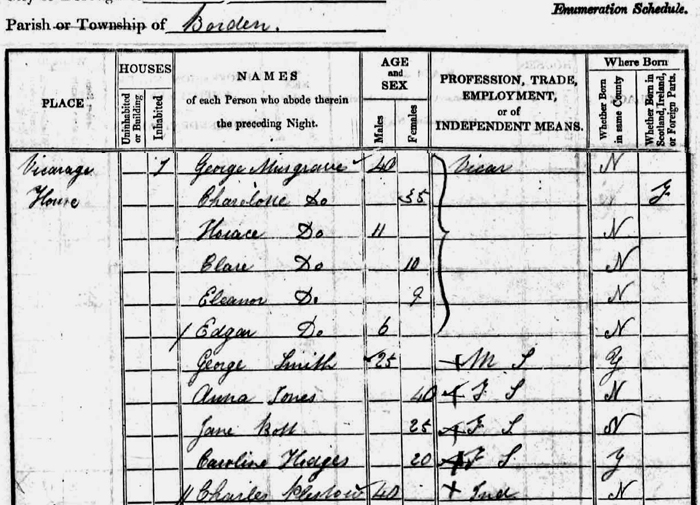 Enumeration Schedule.
Parish or Township of Borden.
PLACE
HOUSES
Uninhabited or Building
Inhabited
NAMES
of each Person who abode therein
the preceding Night.
AGE
and
SEX
Males
Females
PROFESSION, TRADE,
EMPLOYMENT,
or of
INDEPENDENT MEANS.
Where Born
Whether Born in same County
Whether Born in Scotland, Ireland, or Foreign Parts.
Vicarage 1 George Musgrave 40 Vicar N
House Charlotte Do 35 F
Horace Do 11 N
Clare Do 10 N
Eleanor Do 9 N
Edgar Do 6 N
George Smith 25 M S Y
Anna Jones 40 F S N
Jane 25 F S N
Caroline Hodges 20 F S Y
Charles 40 Ind N